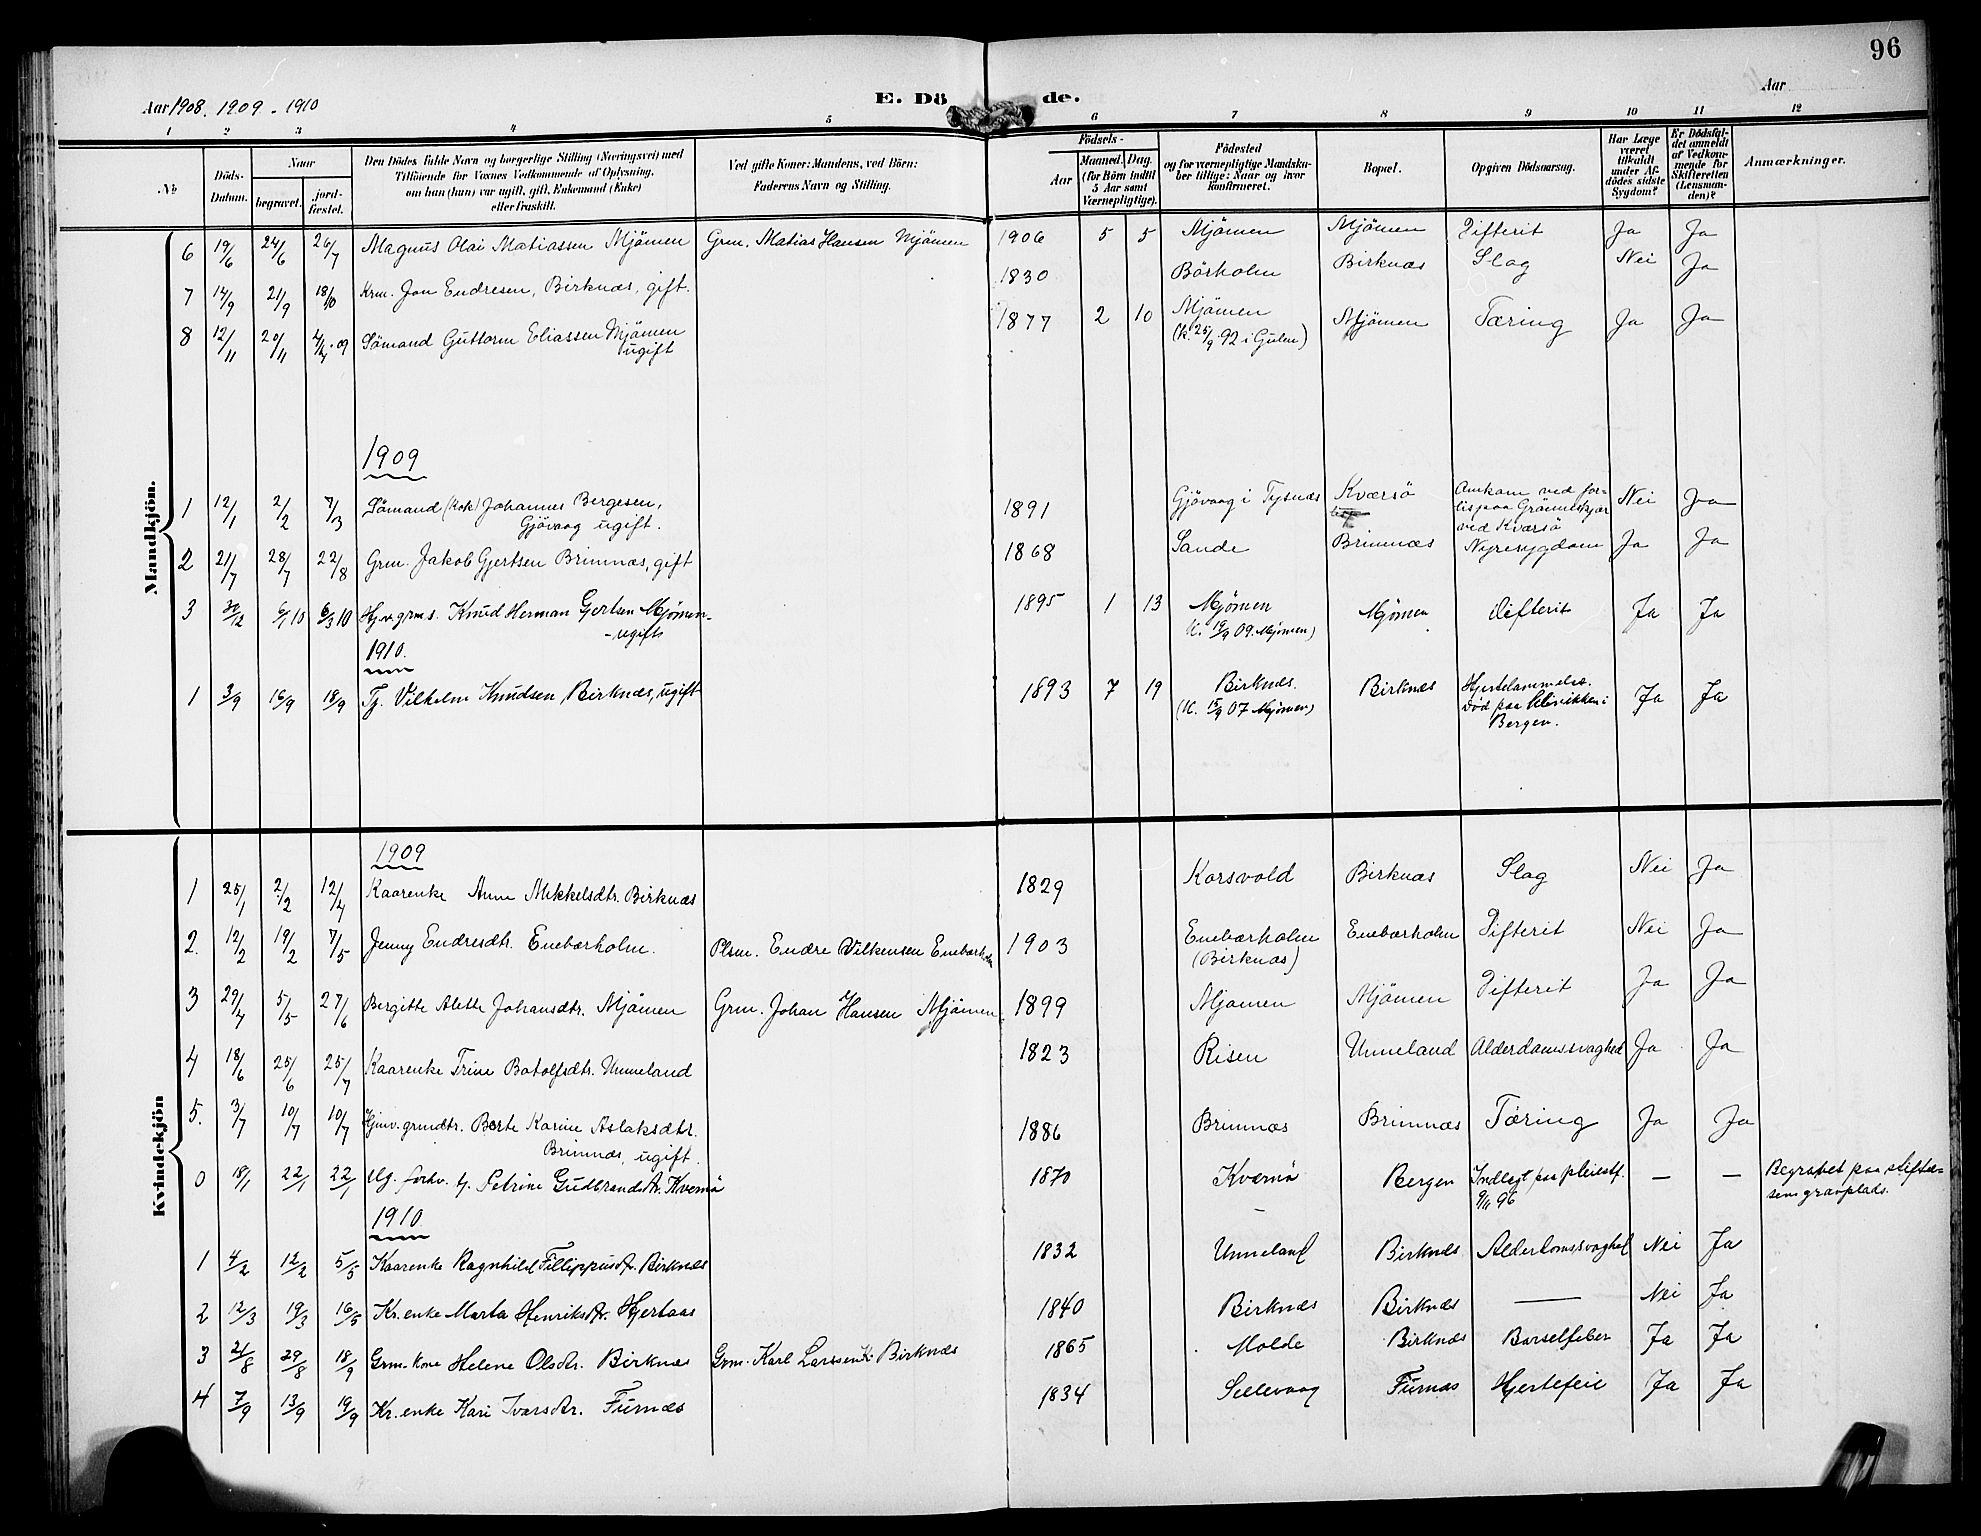 96
Aar 1908. 1909 - 1910
E. Dö de.
Aar
1 2 3 4 5 6 7 8 9 10 11 12
No
Döds-Datum.
Naar
begravet.
jord-fæstet.
Den Dödes fulde Navn og borgerlige Stilling (Næringsvei) med
Tilföiende for Voxnes Vedkommende af Oplysning,
om han (hun) var ugift, gift, Enkemand (Enke)
eller fraskilt.
Ved gifte Koner: Mandens, ved Börn:
Faderens Navn og Stilling.
Födsels-
Aar
Maaned. Dag.
(for Börn indtil
5 Aar samt
Værnepligtige).
Födested
og for værnepligtige Mandska-
ber tillige: Naar og hvor
konfirmeret.
Bopæl.
Opgiven Dödsaarsag.
Har Læge
været
tilkaldt
under Af-
dödes sidste
Sygdom?
Er Dödsfal-
det anmeldt
af Vedkom-
mende for
Skifteretten
(Lensman-
den)?
Anmærkninger.
Mandkjön.
6 19/6 24/6 26/7 Magnus Olai Matiassen Mjömen Grm. Matias Hansen Mjömen 1906 5 5 Mjömen Mjömen Difterit Ja Ja
7 14/9 21/9 18/10 Krm. Jon Endresen, Birknæs, gift. 1830 Börholm Birknæs Slag Nei Ja
8 12/11 20/11 4/4.09 Sömand Guttorm Eliassen Mjömen 1877 2 10 Mjömen Mjömen Tæring Ja Ja
ugift (k. 25/9 92 i Gulen)
1909
1 12/1 2/2 7/3 Sömand (kok) Johannes Bergesen, 1891 Gjövaag i Tysnæs Kværsö Omkom ved for- Nei Ja
Gjövaag ugift. lis paa Grönneskjær
ved Kværsö
2 21/7 28/7 22/8 Grm. Jakob Gjertsen Brimnæs, gift 1868 Sande Brimnæs Nyresygdom Ja Ja
3 30/12 6/1 10 6/3 10 Hjv. grm s. Knud Herman Gertsen Mjømen- 1895 1 13 Mjømen Mjømen Difterit Ja Ja
-ugift (k. 19/9 09. Mjømen)
1910.
1 3/9 16/9 18/9 Tj. Vilhelm Knudsen Birknæs, ugift 1893 7 19 Birknæs. Birknæs Hjertelammelse. Ja Ja
(k. 15/9 07 Mjømen) Død paa klinikken i
Bergen.
Kvindekjön
1909
1 25/1 2/2 12/4 Kaarenke Anne Mikkelsdtr. Birknæs 1829 Korsvold Birknæs Slag Nei Ja
2. 12/2 19/2 7/5 Jenny Endresdtr. Enebærholm. Plsm. Endre Vilkensen Enebærholm 1903 Enebærholm Enebærholm Difterit Nei Ja
(Birknæs)
3 29/4 5/5 27/6 Bergitte Alette Johansdtr. Mjömen Grm. Johan Hansen Mjömen 1899 Mjömen Mjömen Difterit Ja Ja
4 18/6 25/6 25/7 Kaarenke Trine Botolfsdtr. Unneland 1823 Risen Unneland Alderdomssvaghed Ja Ja
5. 3/7 10/7 10/7 Hjmv. grmdtr. Berte Karine Aslaksdtr. 1886 Brimnæs Brimnæs Tæring Ja Ja
Brimnæs, ugift.
0 18/1 22/1 22/1 Ug. forhv. tj. Petrine Gudbrandsdtr. Kvernö 1870 Kvernö Bergen Indlagt paa pleiestf. — — Begravet paa stiftel-
9/11 96 sens gravplads.
1910
1 4/2 12/2 5/5 Kaarenke Ragnhild Fillippusdtr. Birknæs 1832 Unneland Birknæs Alderdomssvaghed Nei Ja
2 12/3 19/3 16/5 Kr. enke Marta Henriksdtr. Hjertaas 1840 Birknæs Birknæs — Nei Ja
3 21/8 29/8 18/9 Grm. kone Helene Olsdtr. Birknæs Grm. Karl Larssen Birknæs 1865 Molde Birknæs Barselfeber Ja Ja
4 7/9 13/9 19/9 Kr. enke Kari Ivarsdtr. Furnæs 1834 Sellevaag Furnæs Hjertefeil Ja Ja